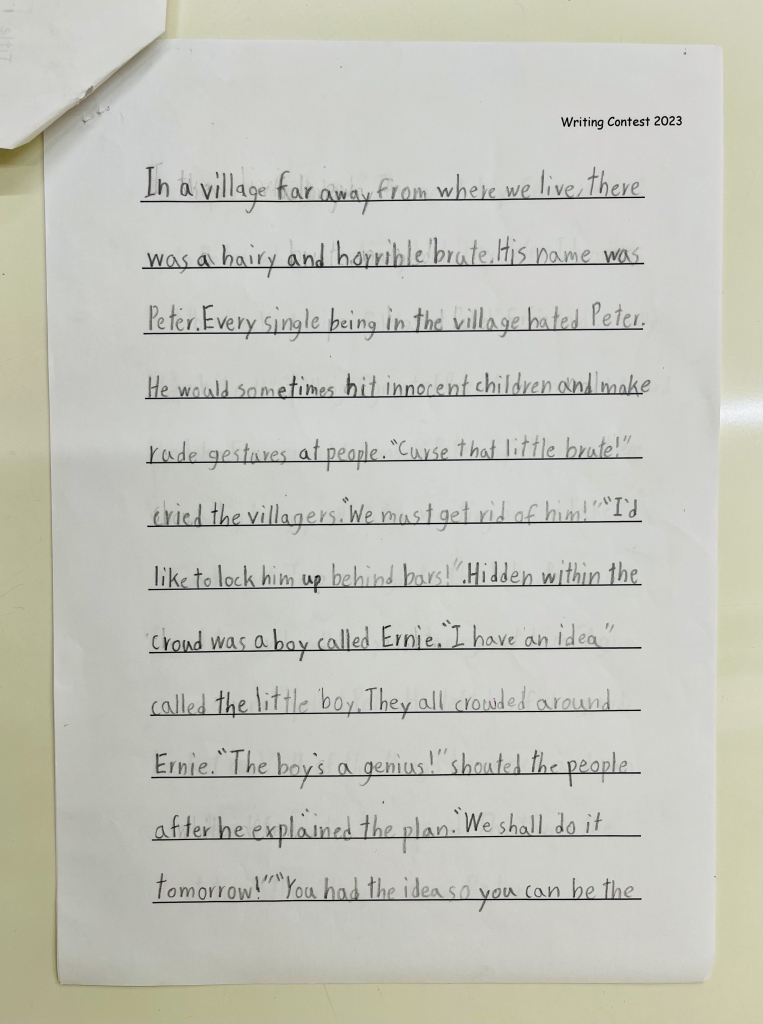 Writing Contest 2023
In a village far away from where we live, there
was a hairy and horrible brute. His name was
Peter. Every single being in the village hated Peter.
He would sometimes hit innocent children and make
rude gestures at people. "Curse that little brute!"
cried the villagers. "We must get rid of him!" "I'd
like to lock him up behind bars!". Hidden within the
croud was a boy called Ernie. "I have an idea"
called the little boy. They all crowded around
Ernie. "The boy's a genius!" shouted the people
after he explained the plan. "We shall do it
tomorrow!" "You had the idea so you can be the